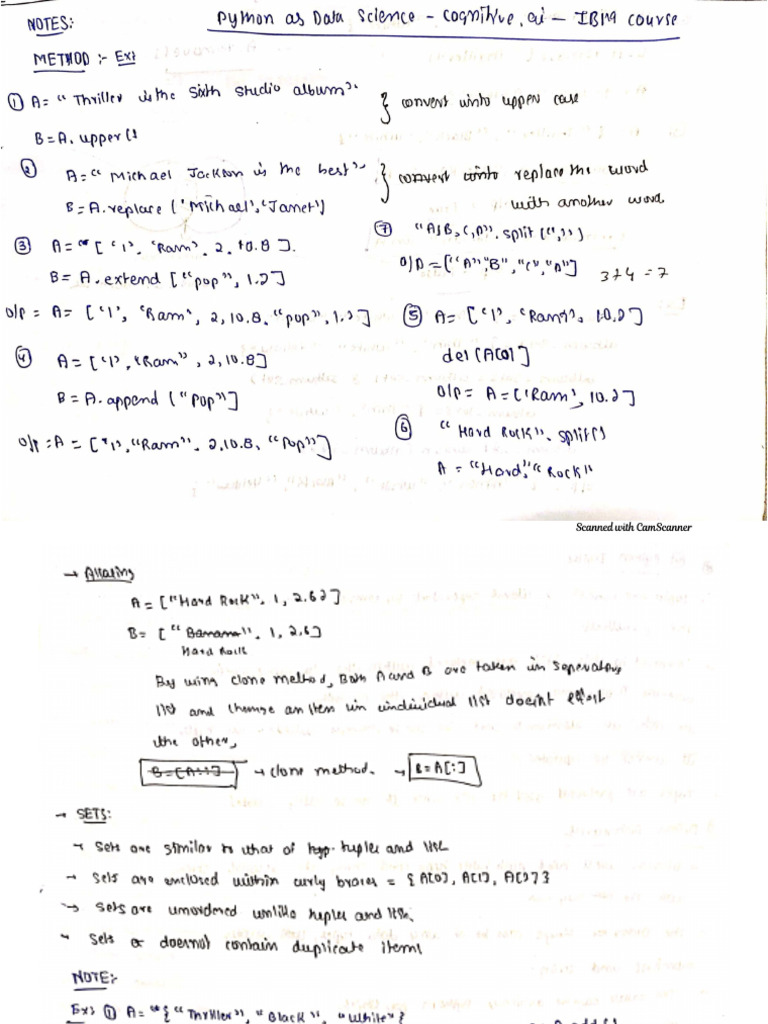 NOTES:
Python as Data Science - cognitive.ai - IBM course
METHOD :- Ex:
① A= "Thriller is the Sixth Studio album".
B=A. upper()
} convert into upper case
② A=" Michael Jackson is the best"
B=A.replace ('Michael','Janet')
} convert into replace the word
with another word
③ A= ["1", "Ram", 2, 10.8].
B= A.extend ["pop", 1.2]
o/p = A= ["1", "Ram", 2, 10.8, "pop", 1.2]
④ A= ["1", "Ram", 2, 10.8]
B= A.append ["Pop"]
o/p := A = ["1", "Ram", 2, 10.8, "Pop"]
⑦ "A,B,C,D". split(",")
o/p =["A","B","C","D"]
3+4 = 7
⑤ A= ["1", "Ram", 10.2]
del [A[0]]
o/p = A=["Ram", 10.2]
⑥ "Hard Rock". split()
A = "Hard","Rock"
Scanned with CamScanner
→ Aliasing
A = ["Hard Rock", 1, 2.62]
B= ["Banana", 1, 2.6]
Hard Rock
By using clone method, Both A and B are taken in seperately
list and change an item in individual list doesn't effect
the other,
B=[A::] → clone method. → B=A[:]
→ SETS:
→ Sets are similar to that of tuples and list
→ Sets are enclosed within curly braces = {A[0], A[1], A[2]}
→ sets are unordered unlike tuples and list.
→ Sets doesnot contain duplicate items
NOTE:-
Ex: ① A= {"Thriller", "Black", "White"}